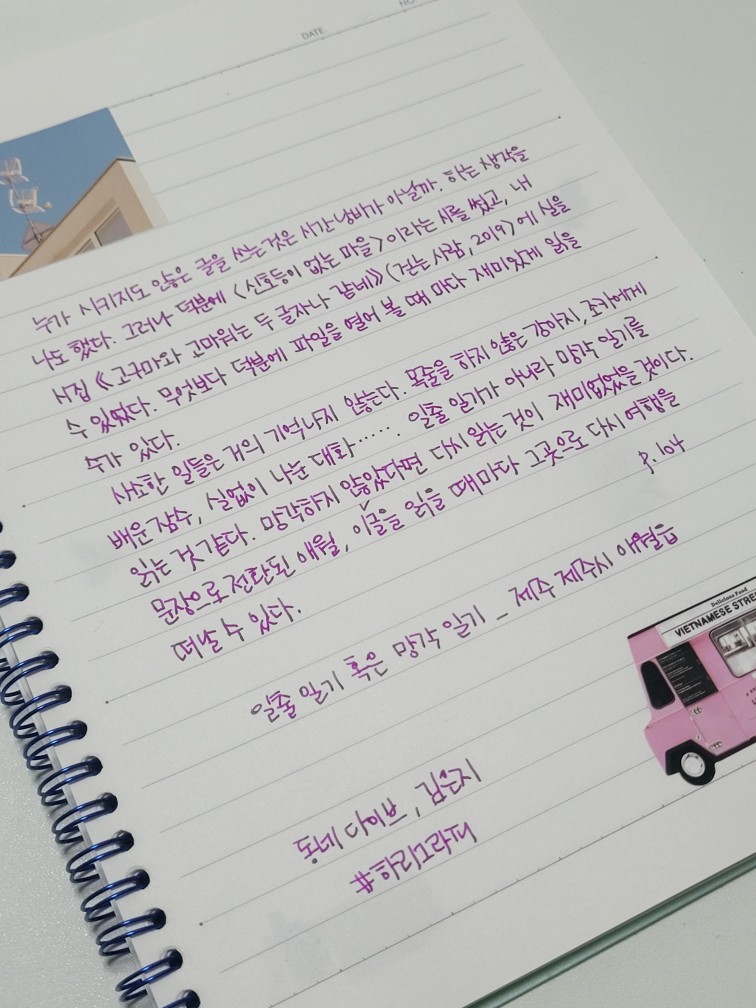 DATE.
NO.
누가 시키지도 않은 글을 쓰는 것은 시간 낭비가 아닐까. 하는 생각을
나도 했다. 그러나 덕분에 <신호등이 없는 마을>이라는 시를 썼고, 내
시집 《고구마와 고마워는 두 글자나 같네》(걷는사람, 2019)에 실을
수 있었다. 무엇보다 덕분에 파일을 열어 볼 때 마다 재미있게 읽을
수가 있다.
사소한 일들은 거의 기억나지 않는다. 목줄을 하지 않은 강아지, 조카에게
배운 잠수, 실없이 나눈 대화……. 일줄 일기가 아니라 망각 일기를
읽는 것 같다. 망각하지 않았다면 다시 읽는 것이 재미없었을 것이다.
문장으로 전환된 애월, 이 글을 읽을 때마다 그곳으로 다시 여행을
떠날 수 있다.
p.104
일줄 일기 혹은 망각 일기 - 제주 제주시 애월읍
동네 바이브, 김은지
Delicious Food
VIETNAMESE STREE